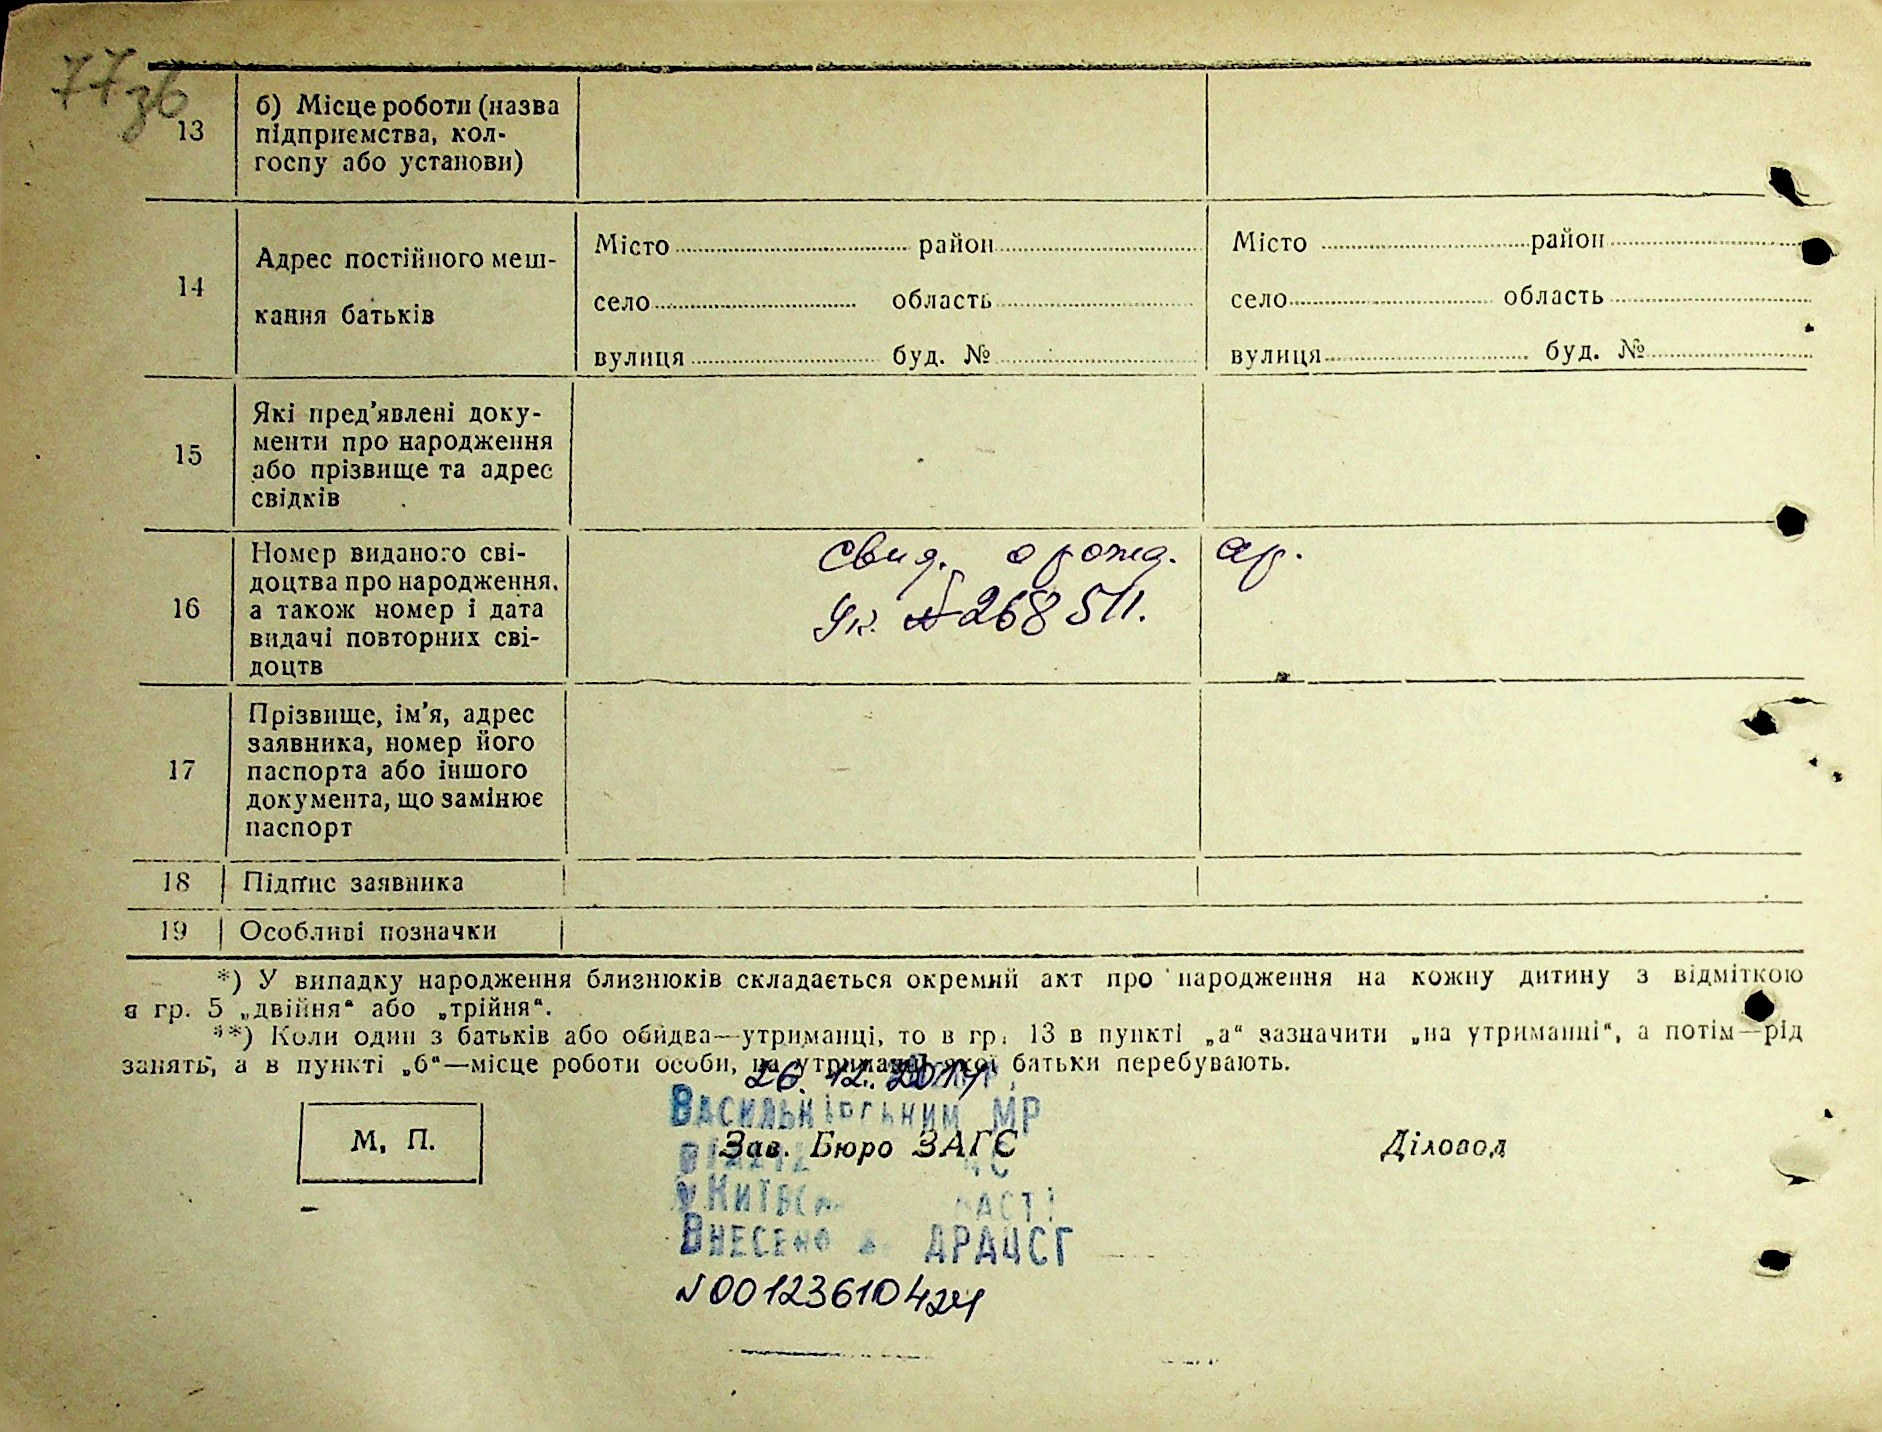 77зб
13
б) Місце роботи (назва
підприємства, кол-
госпу або установи)
14
Адрес постійного меш-
кання батьків
Місто район
село область
вулиця буд. №
Місто район
село область
вулиця буд. №
15
Які пред'явлені доку-
менти про народження
або прізвище та адрес
свідків
16
Номер виданого сві-
доцтва про народження,
а також номер і дата
видачі повторних сві-
доцтв
свид. о рожд. ар.
Ук. № 268511.
17
Прізвище, ім'я, адрес
заявника, номер його
паспорта або іншого
документа, що замінює
паспорт
18 Підпис заявника
19 Особливі позначки
*) У випадку народження близнюків складається окремий акт про народження на кожну дитину з відміткою
в гр. 5 „двійня“ або „трійня“.
**) Коли один з батьків або обидва—утриманці, то в гр. 13 в пункті „а“ зазначити „на утриманні“, а потім—рід
занять, а в пункті „б“—місце роботи особи, на утриманні якої батьки перебувають.
26.12.
Васильківським МР
М. П.
Зав. Бюро ЗАГС
Діловод
Внесено ДРАЦСГ
N00123610424